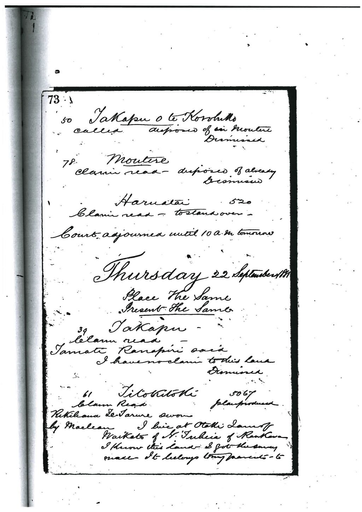 73
50 Takapu o te Koroheke
called disposed of in Moutere
Dismissed
78 Moutere
claim read - disposed of already
Dismissed
Haruatai 520
Claim read - to stand over -
Court adjourned until 10 a.m tomorrow
Thursday 22 September
Place The Same
Present The Same
39 Takapu -
Claim read -
Tamati Ranapiri said
I have no claim to this land
Dismissed
61 Titokitoki 5067
Claim Read plan produced
sworn
by Maclean I live at Otaki I am of
Waikato of N.
I know this land I got the survey
made It belongs to my parents - to